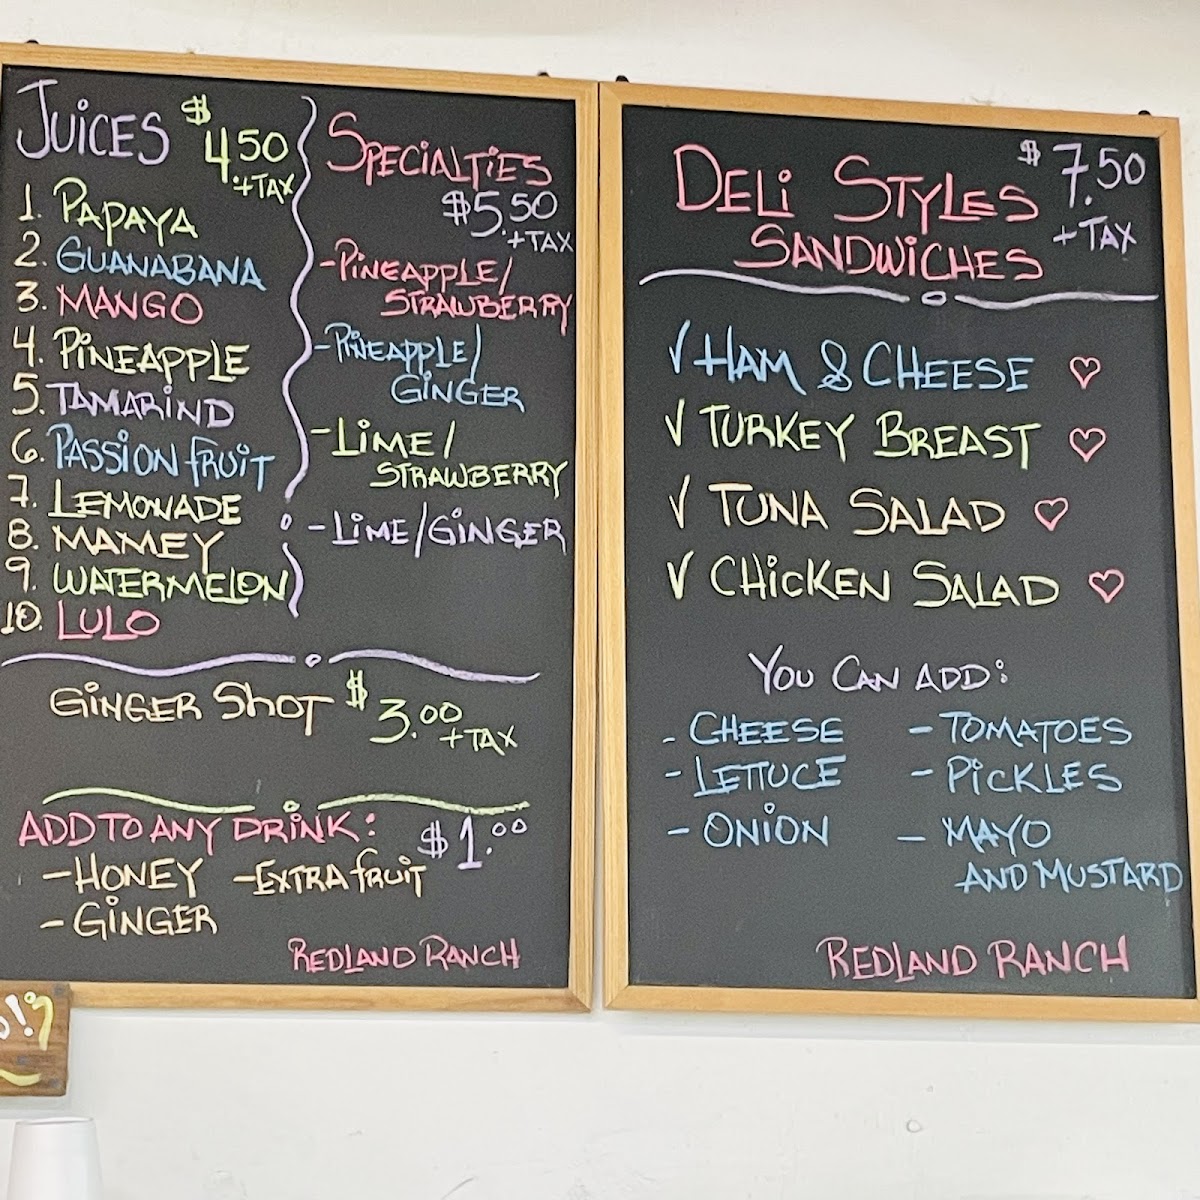 JUICES $4.50
+TAX
1. PAPAYA
2. GUANABANA
3. MANGO
4. PINEAPPLE
5. TAMARIND
6. PASSION FRUIT
7. LEMONADE
8. MAMEY
9. WATERMELON
10. LULO
SPECIALTIES
$5.50
+TAX
-PINEAPPLE/
STRAWBERRY
-PINEAPPLE/
GINGER
-LIME/
STRAWBERRY
-LIME/GINGER
GINGER SHOT $3.00
+TAX
ADD TO ANY DRINK: $1.00
-HONEY -EXTRA FRUIT
-GINGER
REDLAND RANCH
DELI STYLES $7.50
SANDWICHES +TAX
√ HAM & CHEESE ♡
√ TURKEY BREAST ♡
√ TUNA SALAD ♡
√ CHICKEN SALAD ♡
YOU CAN ADD:
- CHEESE - TOMATOES
- LETTUCE - PICKLES
- ONION - MAYO
AND MUSTARD
REDLAND RANCH